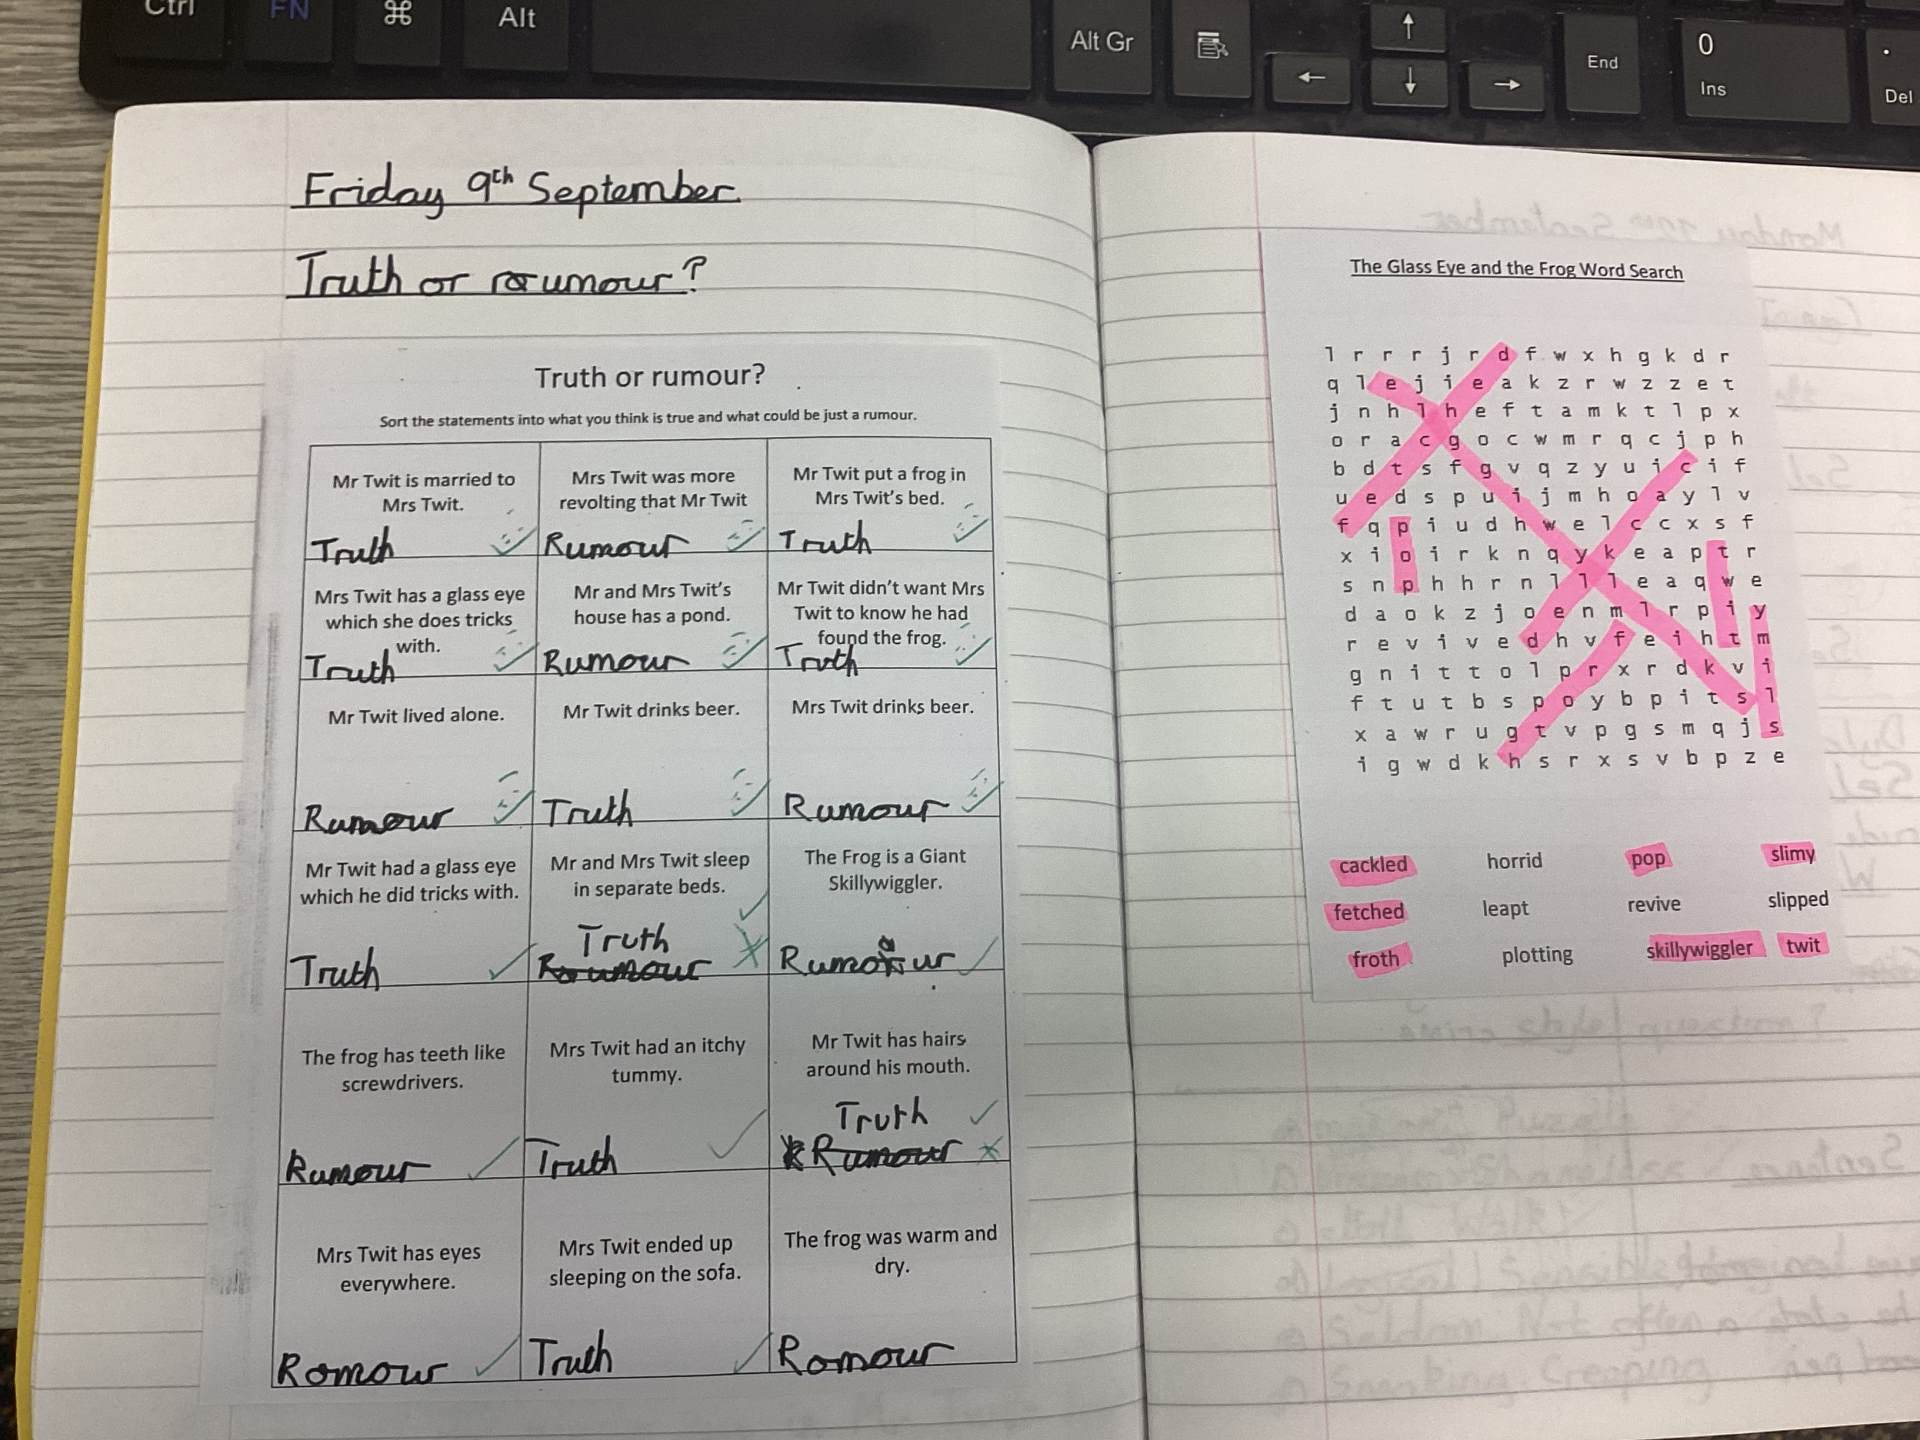 Ctrl
FN
⌘
Alt
Alt Gr
↑
←
↓
→
End
0
Ins
.
Del
Friday 9th September
Truth or rumour?
Truth or rumour?
Sort the statements into what you think is true and what could be just a rumour.
Mr Twit is married to
Mrs Twit.
Truth
Mrs Twit was more
revolting that Mr Twit
Rumour
Mr Twit put a frog in
Mrs Twit's bed.
Truth
Mrs Twit has a glass eye
which she does tricks
with.
Truth
Mr and Mrs Twit's
house has a pond.
Rumour
Mr Twit didn't want Mrs
Twit to know he had
found the frog.
Truth
Mr Twit lived alone.
Rumour
Mr Twit drinks beer.
Truth
Mrs Twit drinks beer.
Rumour
Mr Twit had a glass eye
which he did tricks with.
Truth
Mr and Mrs Twit sleep
in separate beds.
Truth
Roumour
The Frog is a Giant
Skillywiggler.
Rumour
The frog has teeth like
screwdrivers.
Rumour
Mrs Twit had an itchy
tummy.
Truth
Mr Twit has hairs
around his mouth.
Truth
Rumour
Mrs Twit has eyes
everywhere.
Romour
Mrs Twit ended up
sleeping on the sofa.
Truth
The frog was warm and
dry.
Romour
The Glass Eye and the Frog Word Search
l r r r j r d f w x h g k d r
q l e j i e a k z r w z z e t
j n h l h e f t a m k t l p x
o r a c g o c w m r q c j p h
b d t s f g v q z y u i c i f
u e d s p u i j m h o a y l v
f q p i u d h w e l c c x s f
x i o i r k n q y k e a p t r
s n p h h r n l l l e a q w e
d a o k z j o e n m l r p i y
r e v i v e d h v f e i h t m
g n i t t o l p r x r d k v i
f t u t b s p o y b p i t s l
x a w r u g t v p g s m q j s
i g w d k h s r x s v b p z e
cackled horrid pop slimy
fetched leapt revive slipped
froth plotting skillywiggler twit